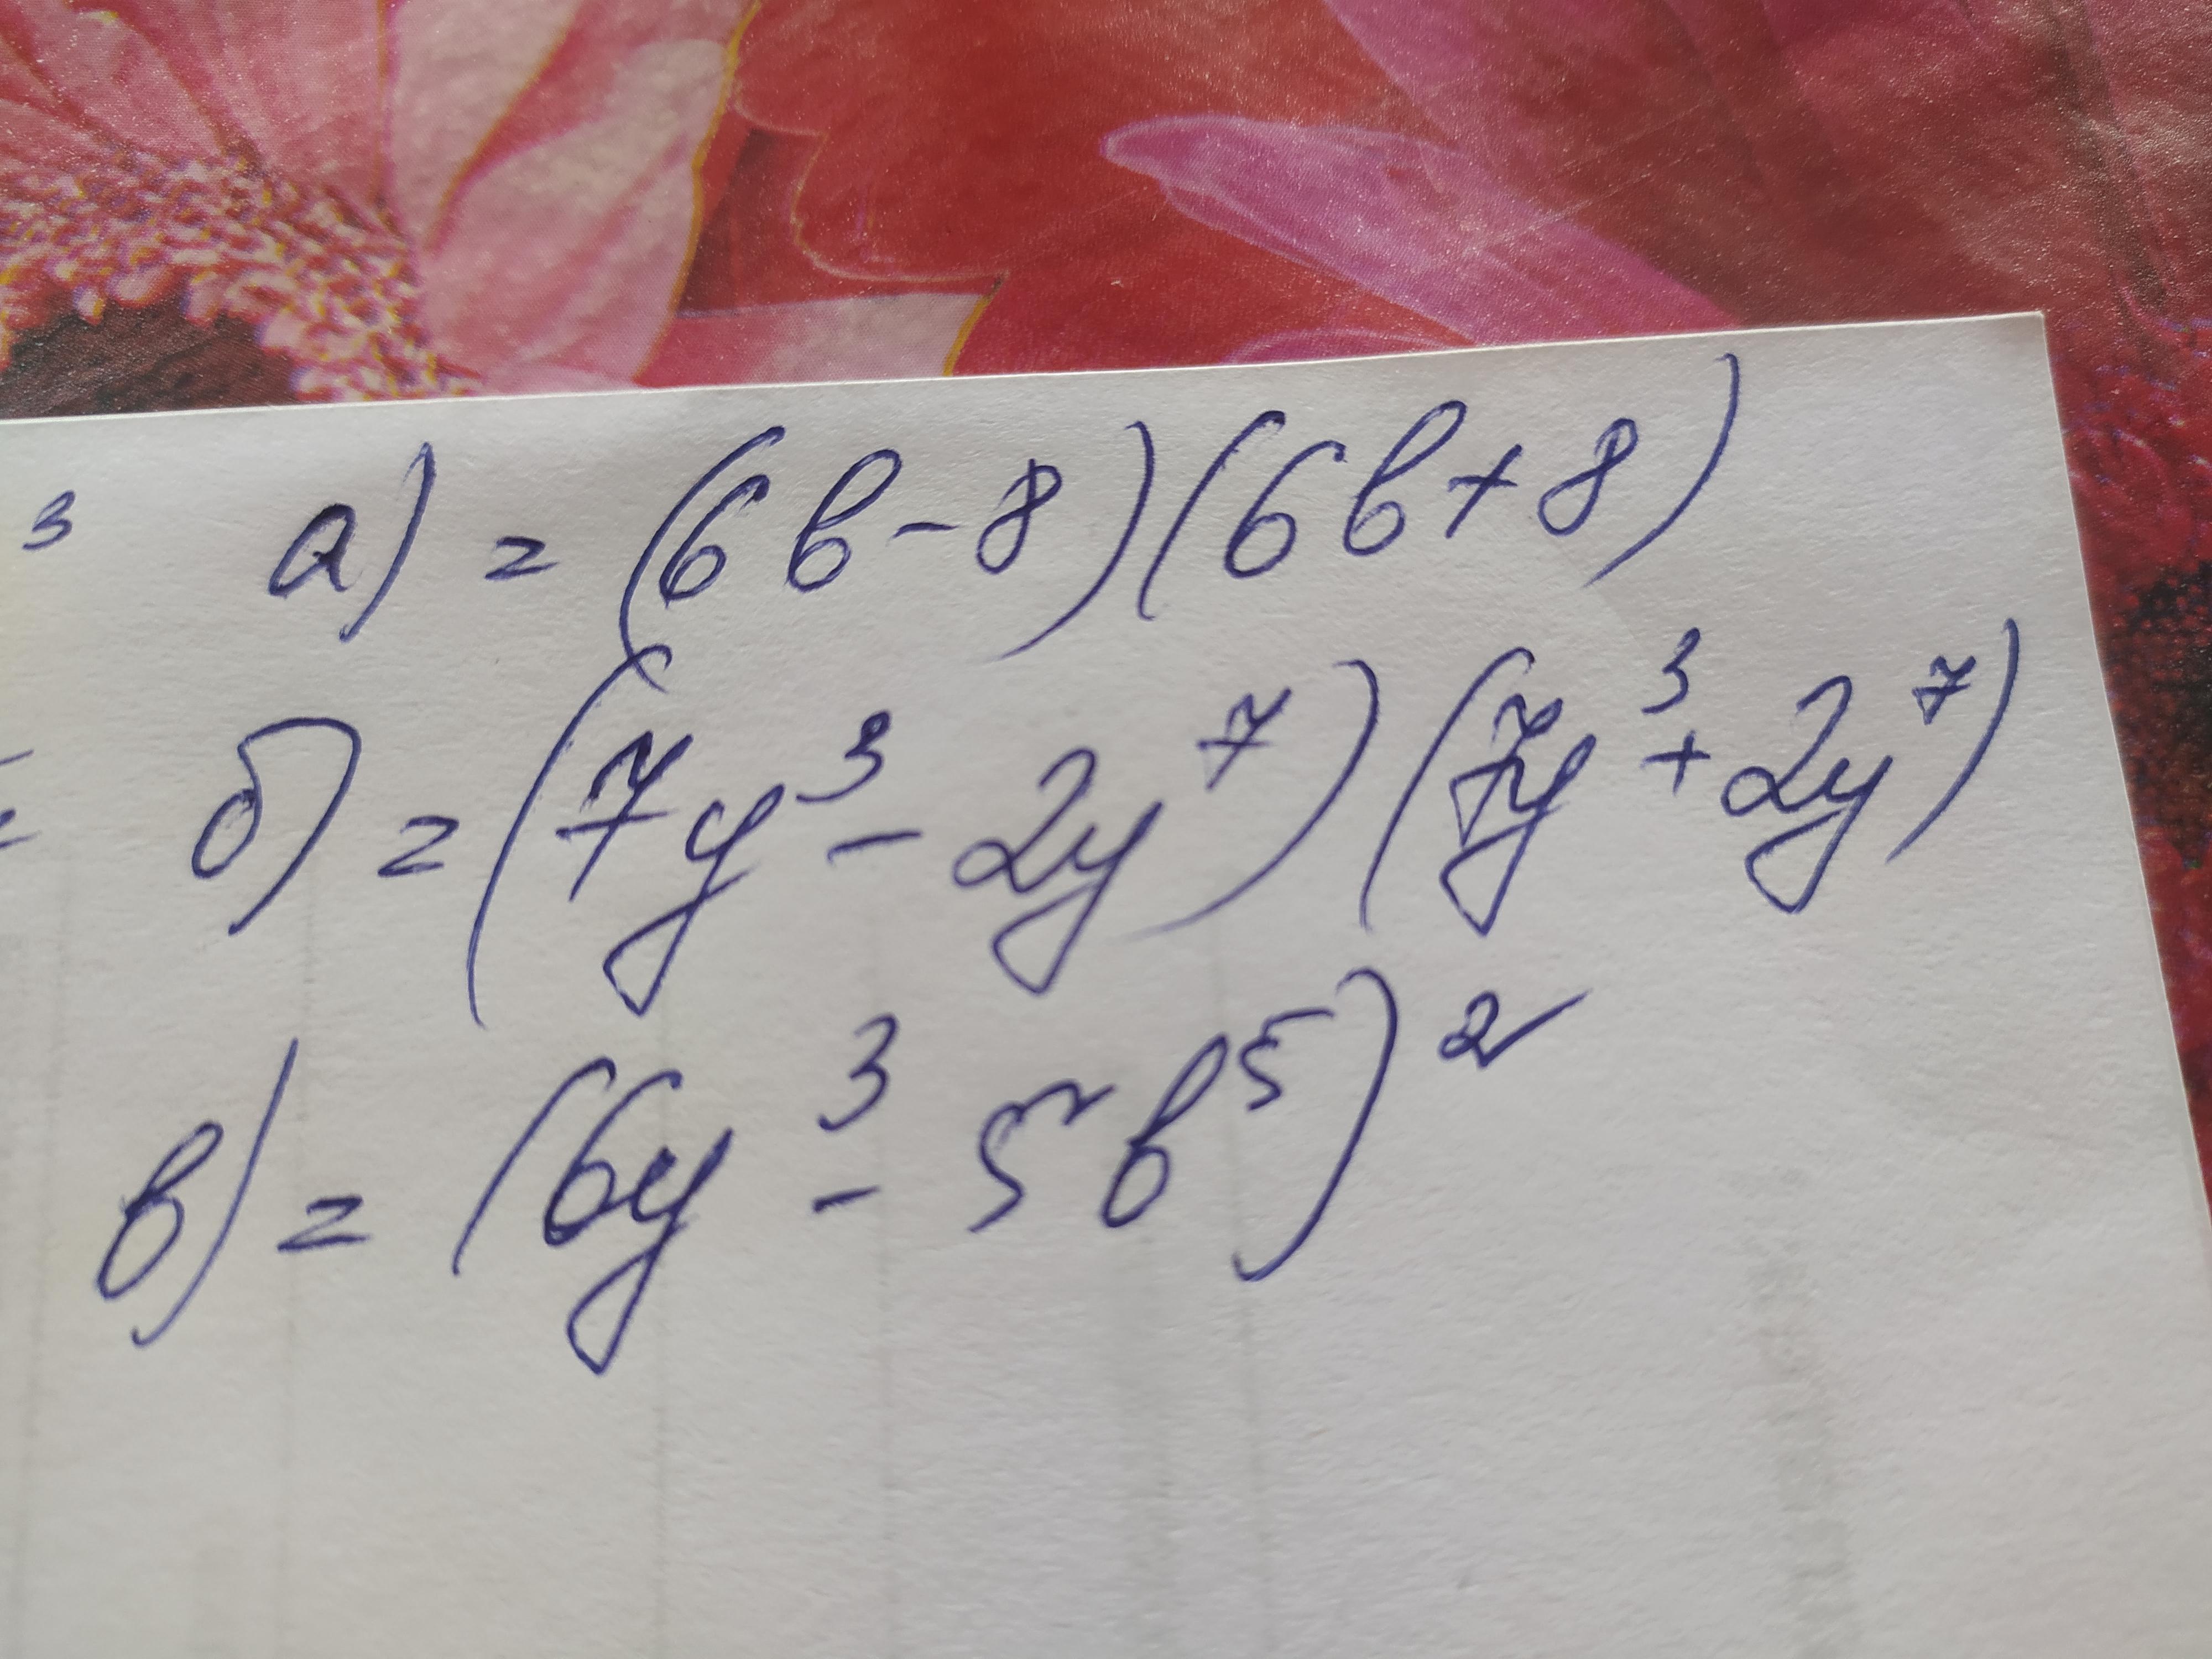 3 а) = (6b-8)(6b+8)
= б) = (7y³ - 2y⁷)(7y³ + 2y⁷)
в) = (6y³ - 5b⁵)²